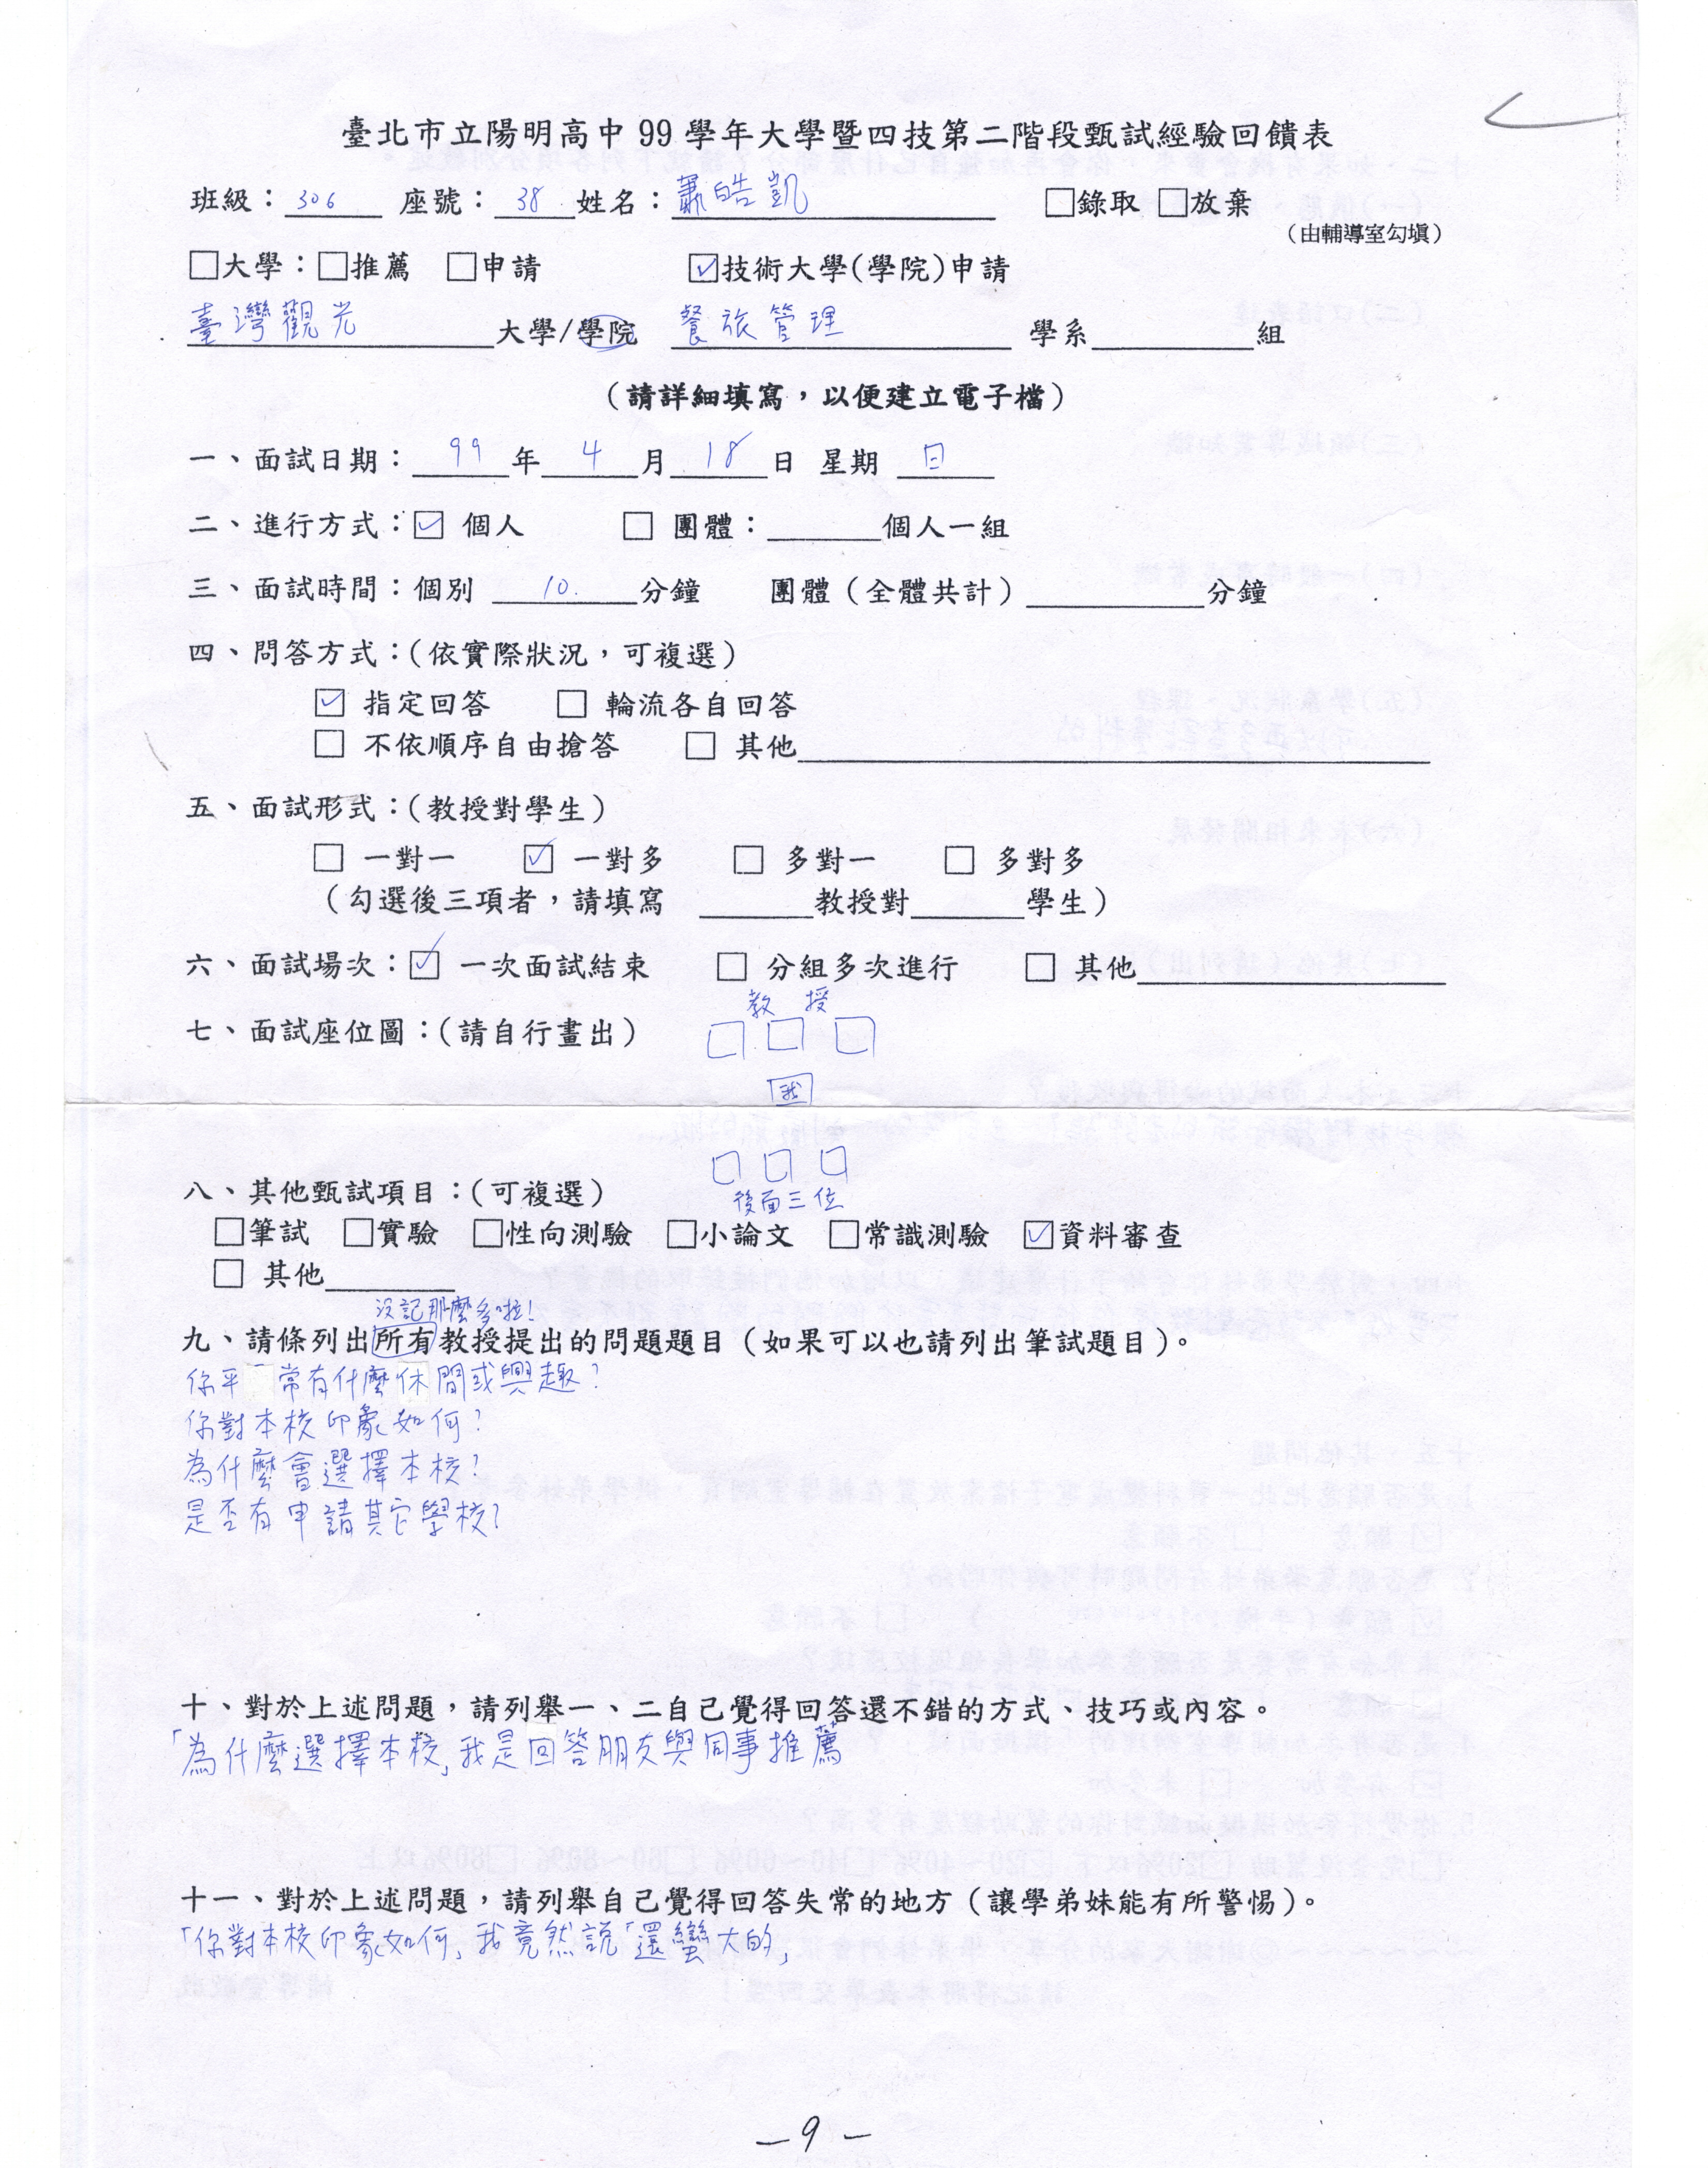 臺北市立陽明高中 99 學年大學暨四技第二階段甄試經驗回饋表
班級：306 座號：38 姓名：蕭皓凱 □錄取 □放棄
（由輔導室勾填）
□大學：□推薦 □申請 ☑技術大學(學院)申請
臺灣觀光大學/學院 餐旅管理 學系______組
（請詳細填寫，以便建立電子檔）
一、面試日期：99年4月18日 星期日
二、進行方式：☑ 個人 □ 團體：______個人一組
三、面試時間：個別 10. 分鐘 團體（全體共計）______分鐘
四、問答方式：(依實際狀況，可複選)
☑ 指定回答 □ 輪流各自回答
□ 不依順序自由搶答 □ 其他______
五、面試形式：(教授對學生)
□ 一對一 ☑ 一對多 □ 多對一 □ 多對多
（勾選後三項者，請填寫 ______教授對______學生）
六、面試場次：☑ 一次面試結束 □ 分組多次進行 □ 其他______
教 授
七、面試座位圖：(請自行畫出)
我
八、其他甄試項目：(可複選)
後面三位
□筆試 □實驗 □性向測驗 □小論文 □常識測驗 ☑資料審查
□ 其他______
沒記那麼多啦！
九、請條列出所有教授提出的問題題目（如果可以也請列出筆試題目）。
你平常有什麼休閒或興趣？
你對本校印象如何？
為什麼會選擇本校？
是否有申請其它學校？
十、對於上述問題，請列舉一、二自己覺得回答還不錯的方式、技巧或內容。
「為什麼選擇本校」我是回答朋友與同事推薦
十一、對於上述問題，請列舉自己覺得回答失常的地方（讓學弟妹能有所警惕）。
「你對本校印象如何」我竟然說「還蠻大的」
－9－